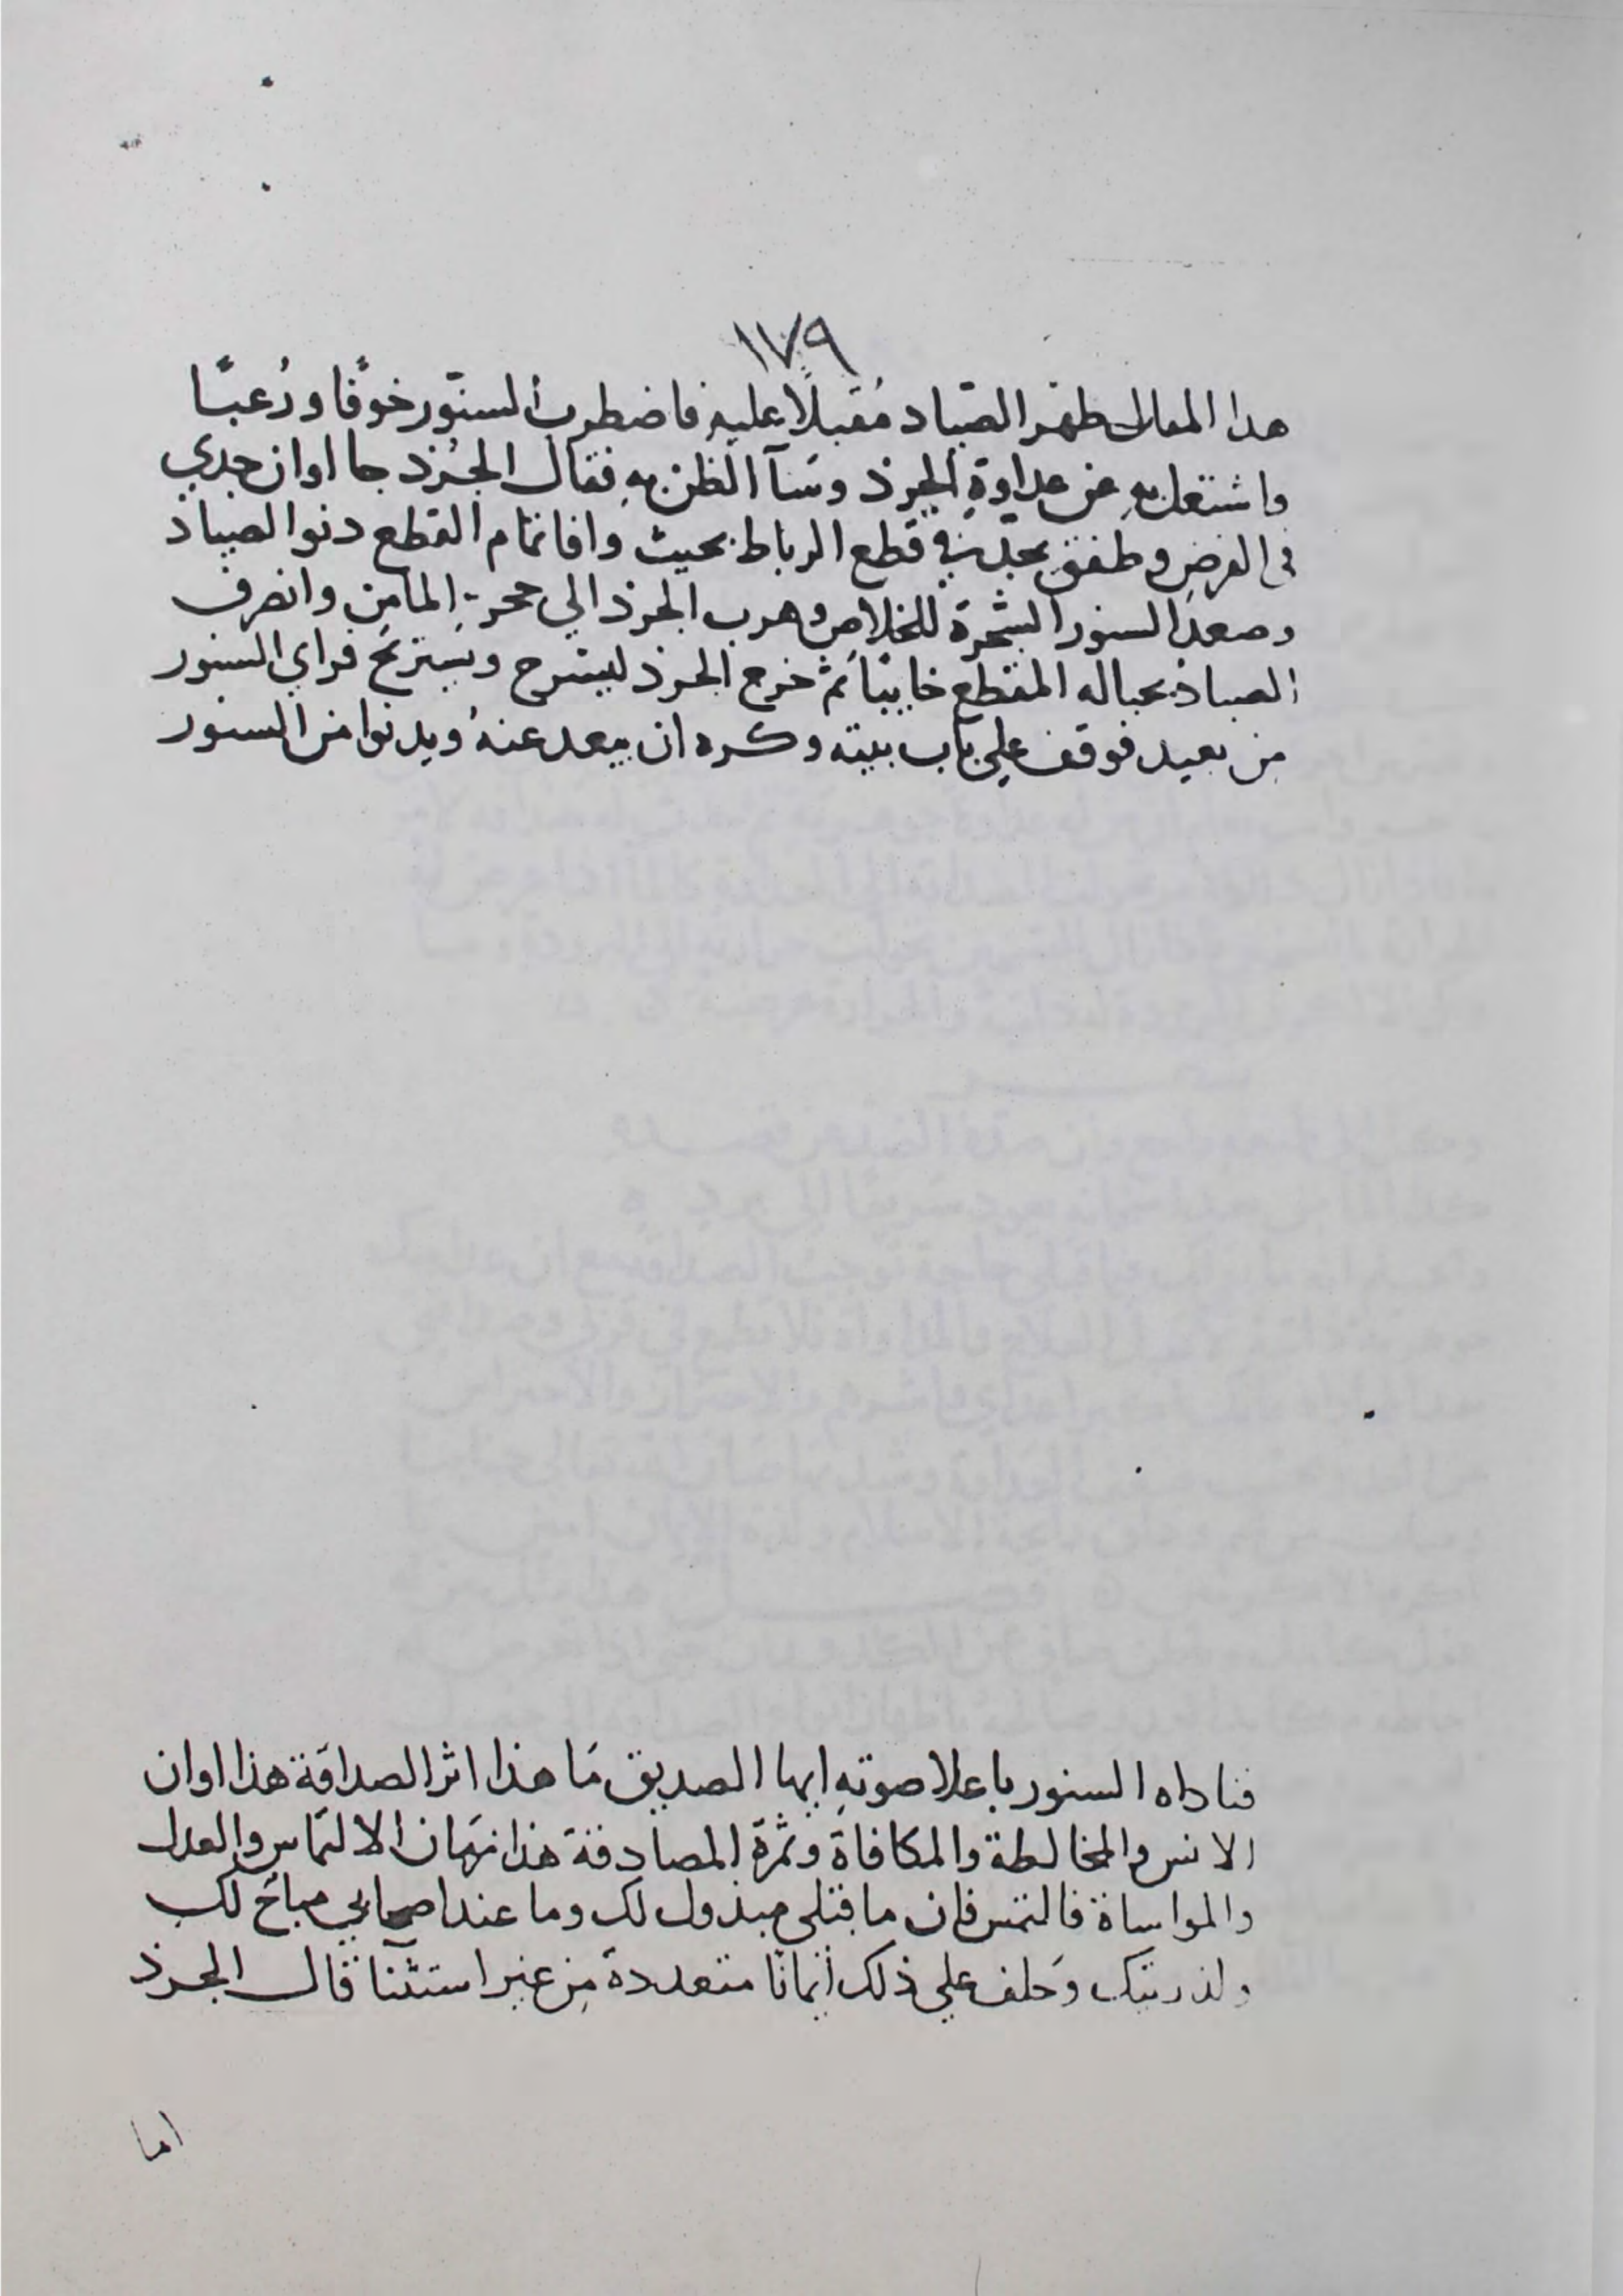 ١٧٩
هدا المقال ظهر الصّياد مُقبلًا عليهِ فاضطرب السنّور خوفًا ورُعبًا
واشتغل بهِ عن عداوةِ الجرذ وسَآ الظن بهِ فقال الجُرذ جا اوان جدي
في القرض وطفق يجد في قطع الرباط بحيث وافا تمام القطع دنوا الصياد
وصعد السنور الشجرة للخلاص وهرب الجرذ الي جحرهِ المامن وانصرف
الصياد بحباله المقطع خايبًا ثم خرج الجرذ ليسرح ويستريح فراي السنور
من بعيد فوقف علي باب بيته وكره ان يبعد عنهُ ويدنوا من السنور
فناداه السنور باعلا صوتهِ ايها الصديق مَا هذا اثر الصداقة هذا اوان
الانس والمخالطة والمكافاة وثمرة المصادقة هذا زمان الالتماس والعدل
والمواساة فالتمس فان ما قبلي مبذول لك وما عند اصحابي مباح لك
ولذريتك وَحلف علي ذلك أيمانًا متعددة من غير استثنا قال الجرذ
اما